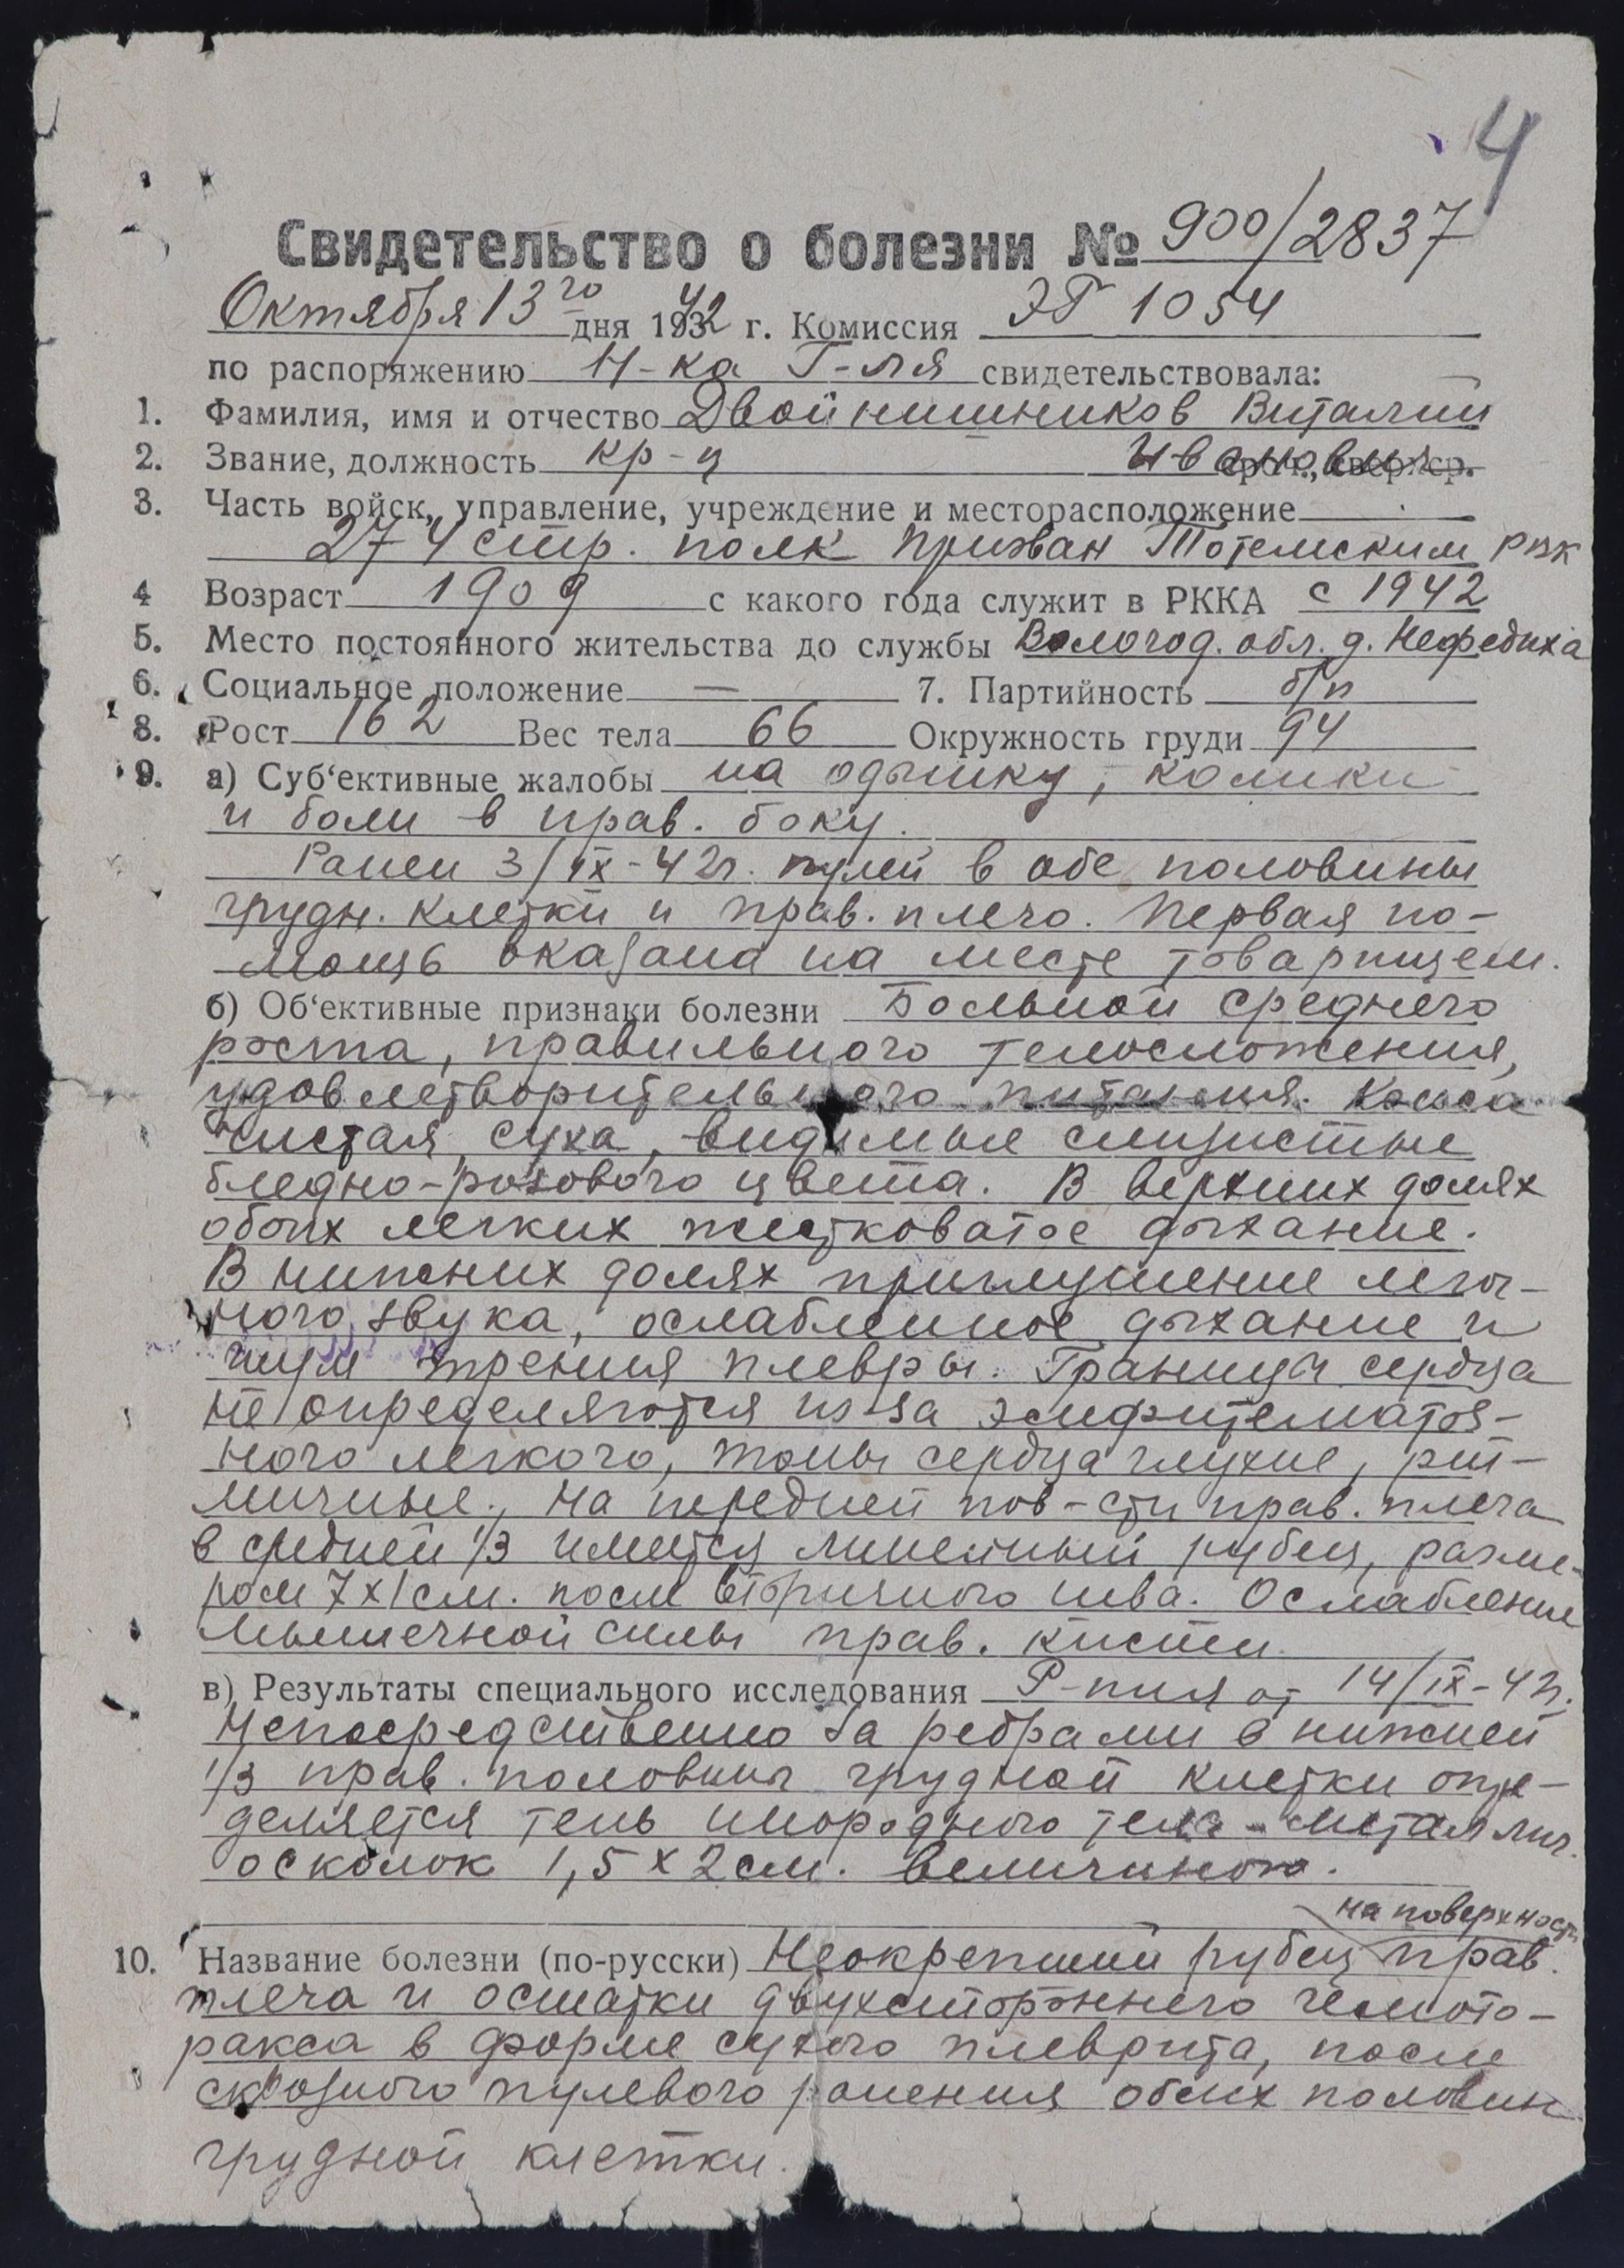 4
Свидетельство о болезни № 900/2837
Октября 13го дня 1942 г. Комиссия ЭГ 1054
по распоряжению Н-ка Г-ля свидетельствовала:
1. Фамилия, имя и отчество Двойнишников Виталий
2. Звание, должность кр-ц Иванович сроч., сверхср.
3. Часть войск, управление, учреждение и месторасположение
274 стр. полк призван Тотемским РВК
4 Возраст 1909 с какого года служит в РККА с 1942
5. Место постоянного жительства до службы Вологод. обл. д. Нефедиха
6. Социальное положение — 7. Партийность б/п
8. Рост 162 Вес тела 66 Окружность груди 94
9. а) Суб‘ективные жалобы на одышку, колики
и боли в прав. боку.
Ранен 3/IX-42г. пулей в обе половины
грудн. клетки и прав. плечо. Первая по-
мощь оказана на месте товарищем.
б) Об‘ективные признаки болезни Больной среднего
роста, правильного телосложения,
удовлетворительного питания. Кожа
чистая, суха, видимые слизистые
бледно-розового цвета. В верхних долях
обоих легких жестковатое дыхание.
В нижних долях приглушение легоч-
ного звука, ослабленное дыхание и
шум трения плевры. Границы сердца
не определяются из-за эмфитематоз-
ного легкого, тоны сердца глухие, рит-
мичные. На передней пов-сти прав. плеча
в средней 1/3 имеется линейный рубец, разме-
ром 7х1 см. после вторичного шва. Ослабление
мышечной силы прав. кисти.
в) Результаты специального исследования Р-пия от 14/IX-42г.
Непосредственно за ребрами в нижней
1/3 прав. половины грудной клетки опре-
деляется тень инородного тела - металлич.
осколок 1,5 х 2 см. величиною.
на поверхности
10. Название болезни (по-русски) Неокрепший рубец прав.
плеча и остатки двухстороннего гемото-
ракса в форме сухого плеврита, после
сквозного пулевого ранения обеих половин
грудной клетки.